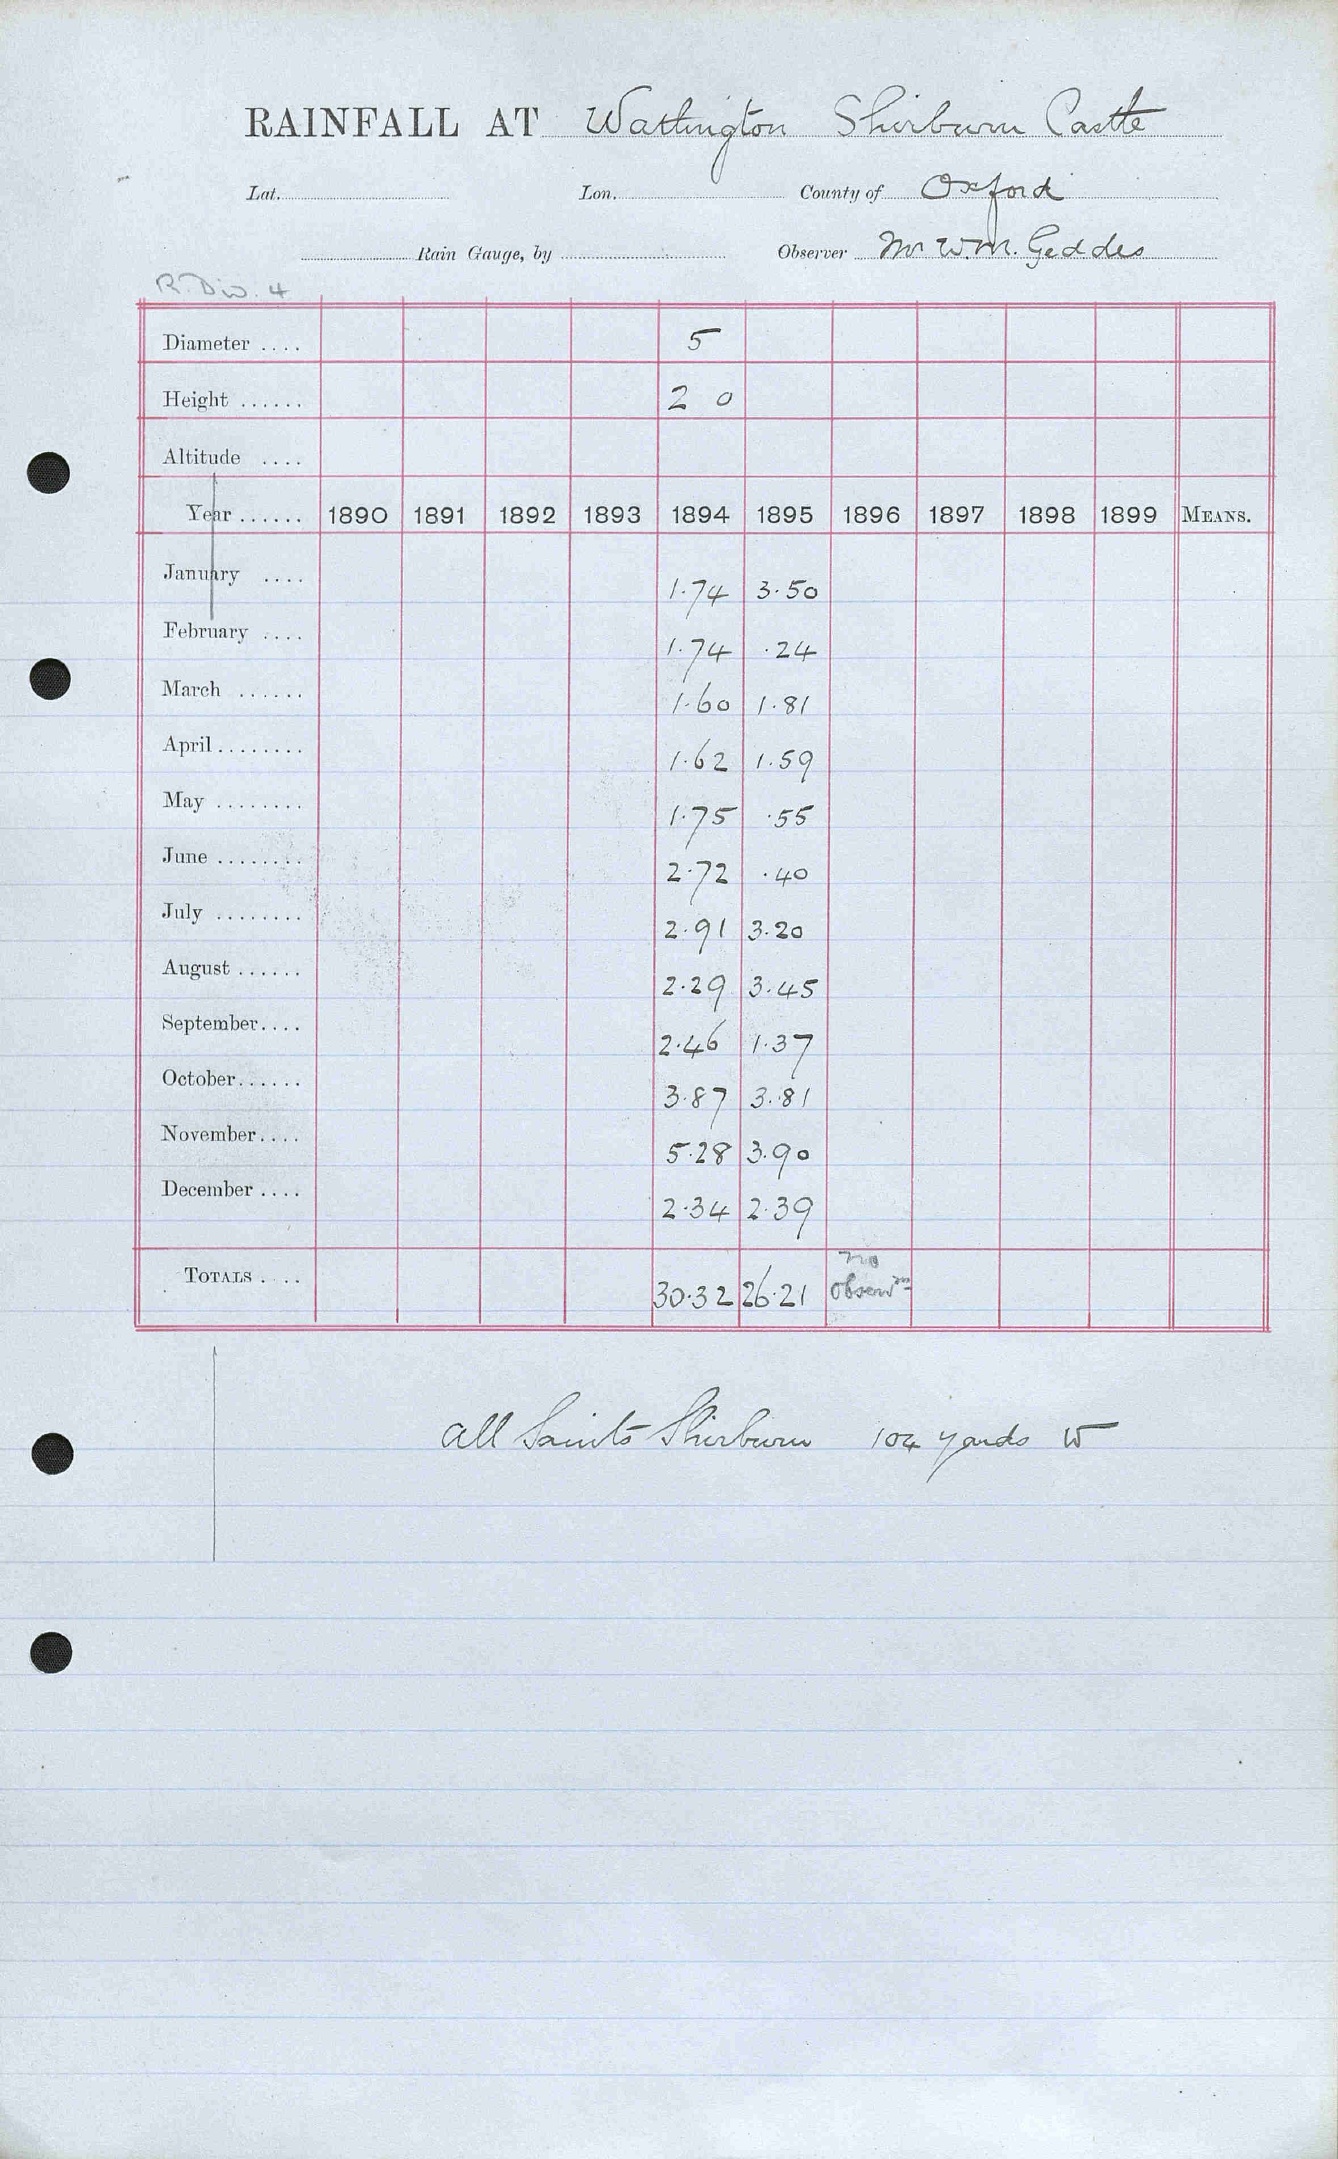 RAINFALL AT Watlington Shirburn Castle
Lat. Lon. County of Oxford
Rain Gauge, by Observer Mr W.M. Geddes
R. Div. 4
Diameter .... 5
Height ...... 2 0
Altitude ....
Year ...... 1890 1891 1892 1893 1894 1895 1896 1897 1898 1899 MEANS.
January .... 1.74 3.50
February .... 1.74 .24
March ...... 1.60 1.81
April ........ 1.62 1.59
May ........ 1.75 .55
June ........ 2.72 .40
July ........ 2.91 3.20
August ...... 2.29 3.45
September.... 2.46 1.37
October...... 3.87 3.81
November.... 5.28 3.90
December .... 2.34 2.39
TOTALS .... 30.32 26.21 no observn
All Saints Shirburn 104 yards W